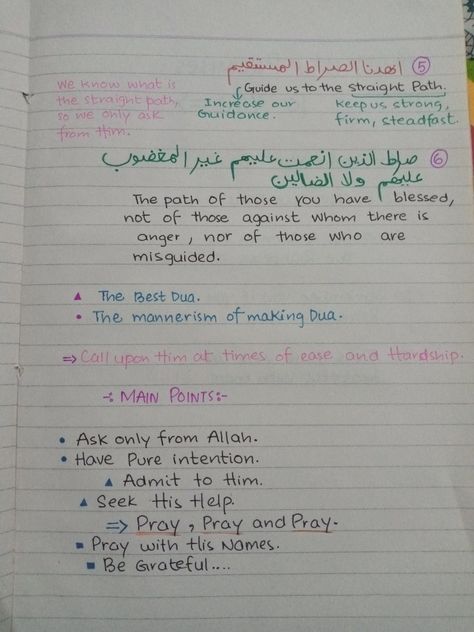 اهدنا الصراط المستقيم ⑤
Guide us to the straight Path.
We know what is
the straight path,
so we only ask
from Him.
Increase our
Guidance.
keep us strong,
firm, steadfast.
صراط الذين انعمت عليهم غير المغضوب ⑥
عليهم ولا الضالين
The path of those you have blessed,
not of those against whom there is
anger, nor of those who are
misguided.
▲ The Best Dua.
• The mannerism of making Dua.
⇒ Call upon Him at times of ease and Hardship.
-: MAIN POINTS:-
• Ask only from Allah.
• Have Pure intention.
▲ Admit to Him.
▲ Seek His Help.
⇒ Pray, Pray and Pray.
■ Pray with His Names.
■ Be Grateful....